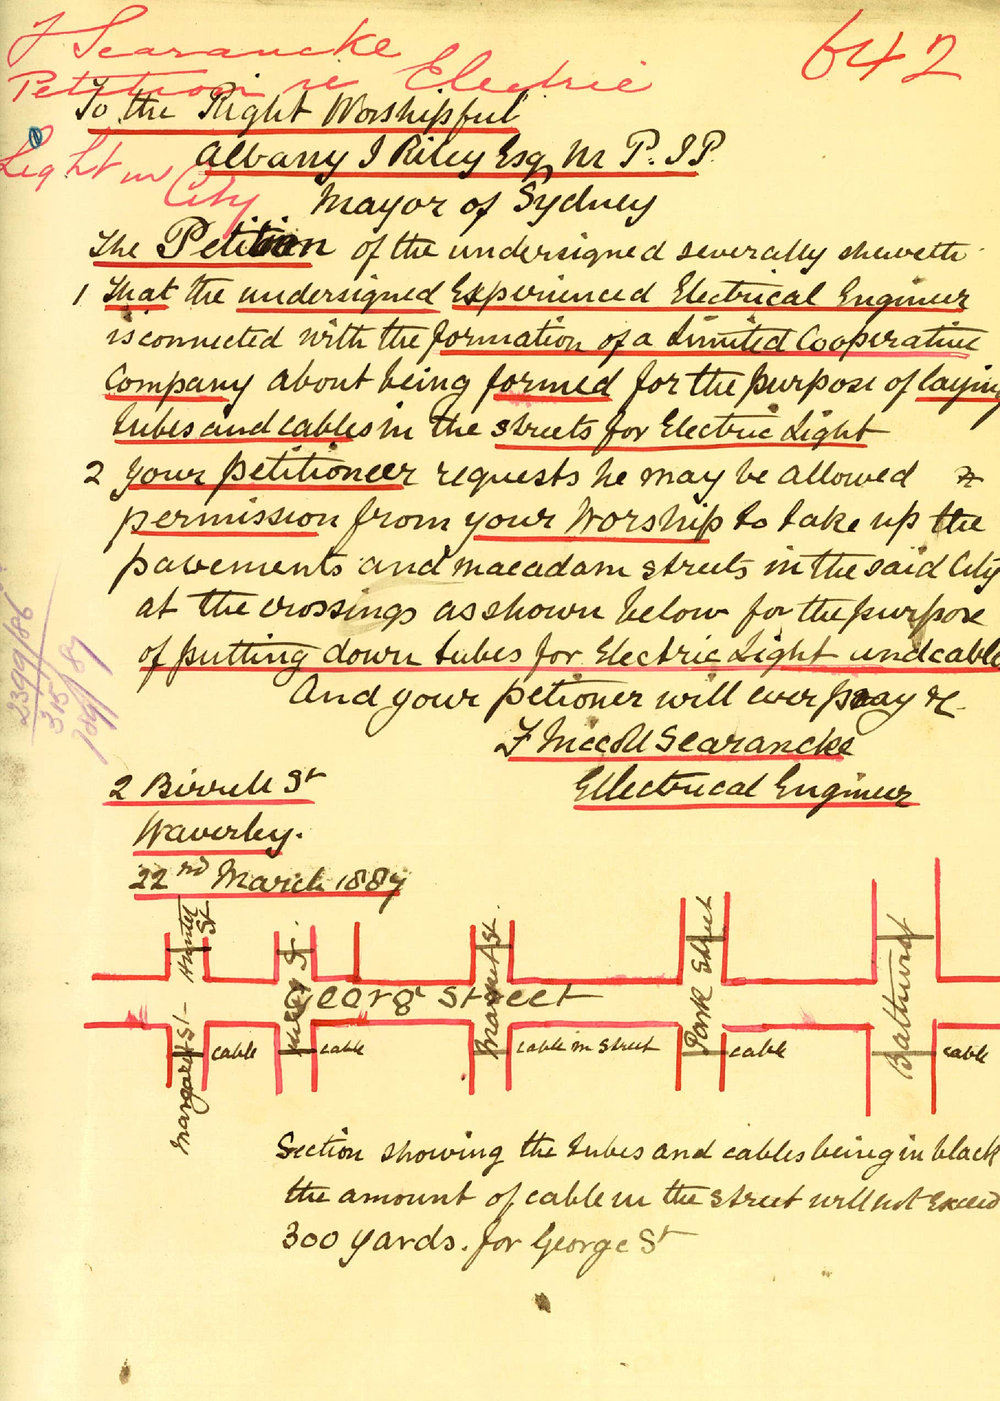 F Scarancke
642
Petition re Electric
Light in City
To the Right Worshipful
Albany J Riley Esq M P. JP.
Mayor of Sydney
The Petition of the undersigned severally sheweth
1 That the undersigned Experienced Electrical Engineer
is connected with the formation of a Limited Cooperative
Company about being formed for the purpose of laying
tubes and cables in the streets for Electric Light
2 Your petitioneer requests he may be allowed
permission from your Worship to take up the
pavements and macadam streets in the said City
at the crossings as shown below for the purpose
of putting down tubes for Electric Light and cable
And your petioner will ever pray &c.
F McColl Scarancke
Ellectrical Engineer
2 Birrell St
Waverley.
22nd March 1887
2399/86
315/87
Hunter St
King St.
Market St.
Park Street
Bathurst
George Street
Margaret St
cable
cable
cable in street
cable
cable
Section showing the tubes and cables being in black
the amount of cable in the street will not Exceed
300 yards. for George St